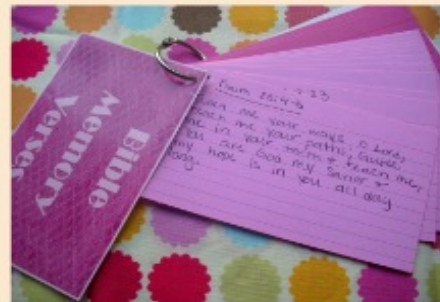 Bible
Memory
Verses
Psalm 25:4-5
me your ways, O Lord,
teach me your paths; Guide
me in your truth & teach me,
you are God my Savior &
my hope is in you all day
long.